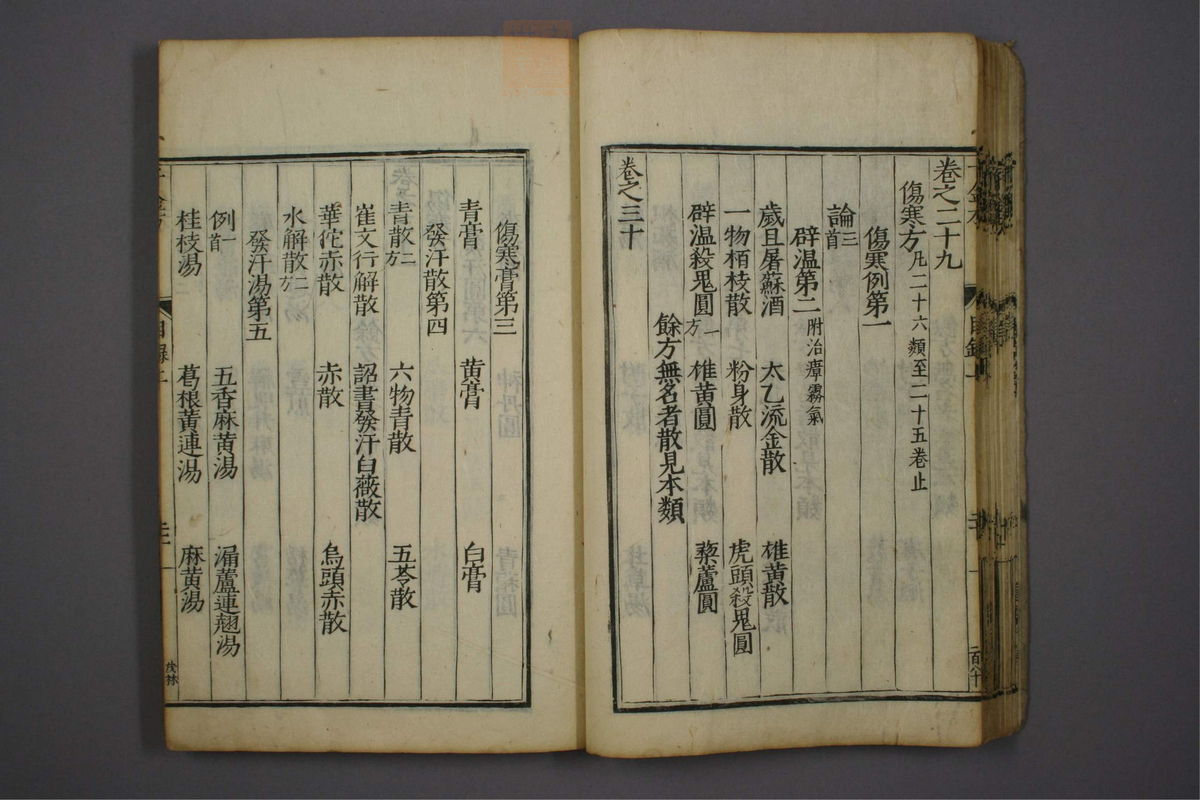 卷之二十九
傷寒方凡二十六類至二十五卷止
傷寒例第一
論三首
辟温第二附治瘴霧氣
歲旦屠蘇酒 太乙流金散 雄黄散
一物栢枝散 粉身散 虎頭殺鬼圓
辟温殺鬼圓一方 雄黄圓 藜蘆圓
餘方無名者散見本類
卷之三十
傷寒膏第三
青膏 黄膏 白膏
發汗散第四
青散二方 六物青散 五苓散
崔文行解散 詔書發汗白薇散
華佗赤散 赤散 烏頭赤散
水解散二方
發汗湯第五
例一首 五香麻黄湯 漏蘆連翹湯
桂枝湯 葛根黄連湯 麻黄湯